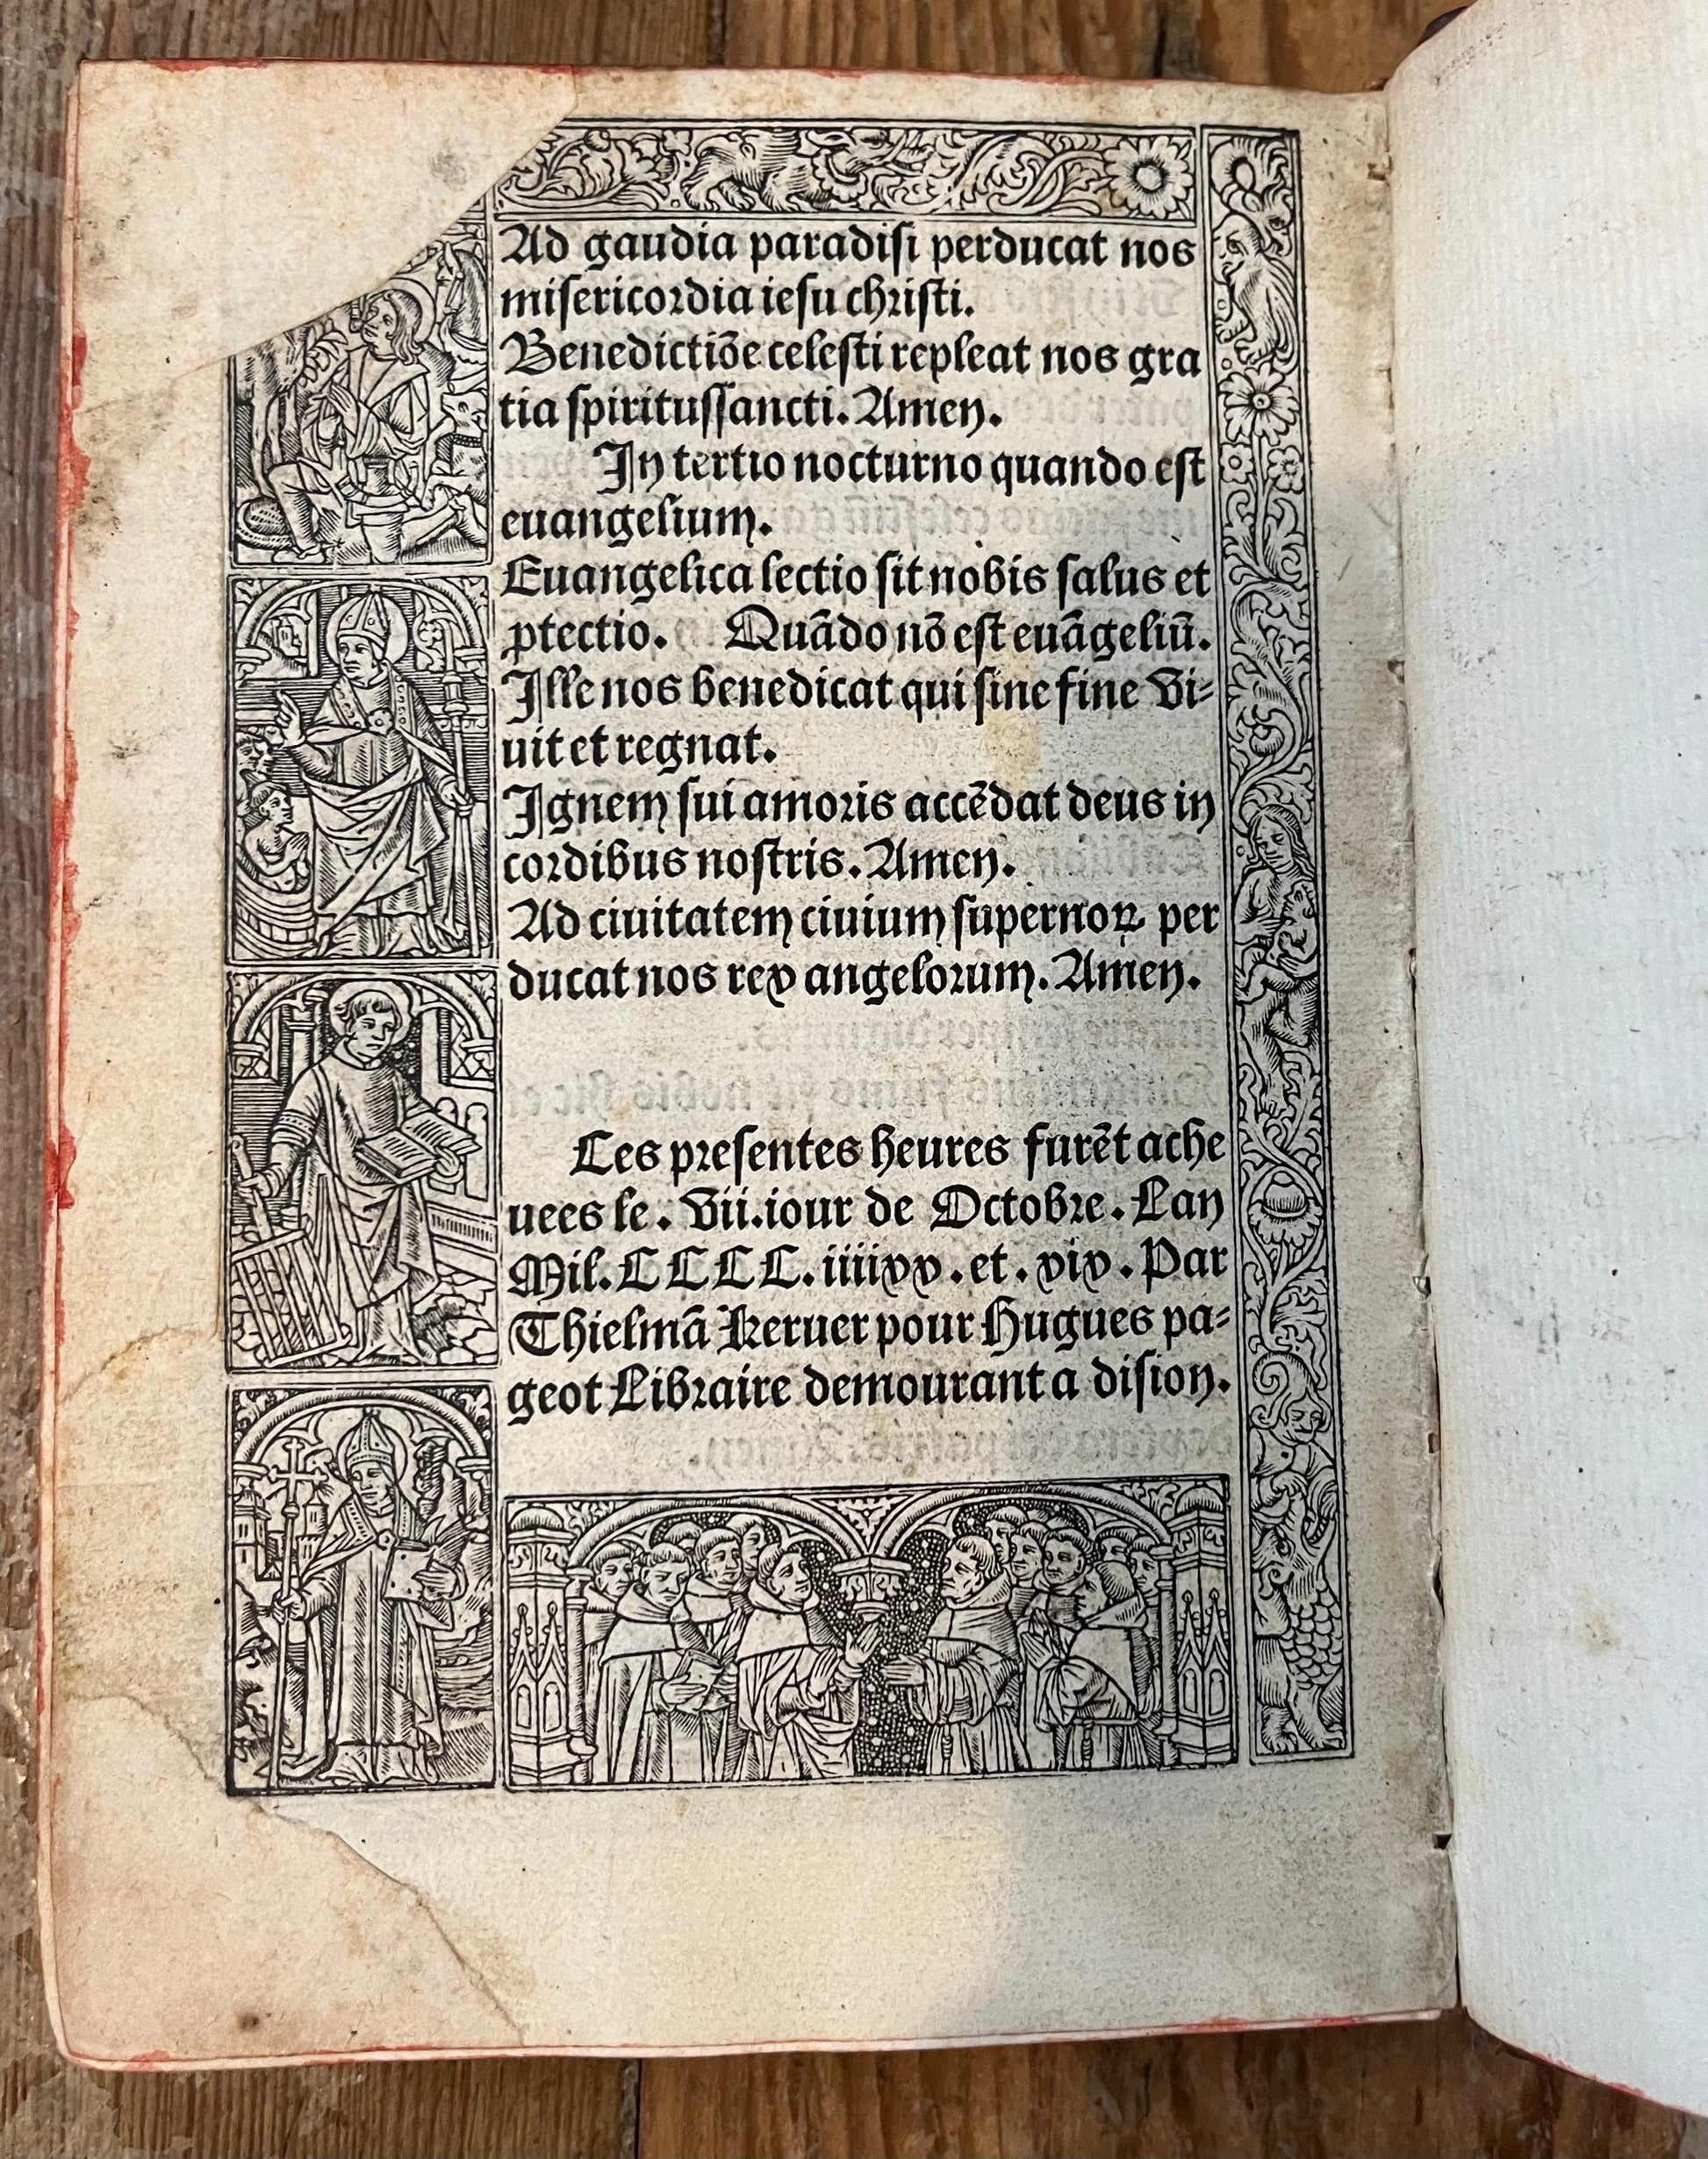 Ad gaudia paradisi perducat nos
misericordia iesu christi.
Benedictiõe celesti repleat nos gra
tia spiritussancti. Amen.
In tertio nocturno quando est
euangelium.
Euangelica lectio sit nobis salus et
ꝓtectio. Quãdo nõ est euãgeliũ.
Ille nos benedicat qui sine fine vi⸗
uit et regnat.
Ignem sui amoris accẽdat deus in
cordibus nostris. Amen.
Ad ciuitatem ciuium supernoꝝ per
ducat nos rex angelorum. Amen.
Ces presentes heures furẽt ache
uees le. vii. iour de Octobre. Lan
Mil. CCCC. iiiixx. et. xix. Par
Thielmã Keruer pour Hugues pa⸗
geot Libraire demourant a dision.